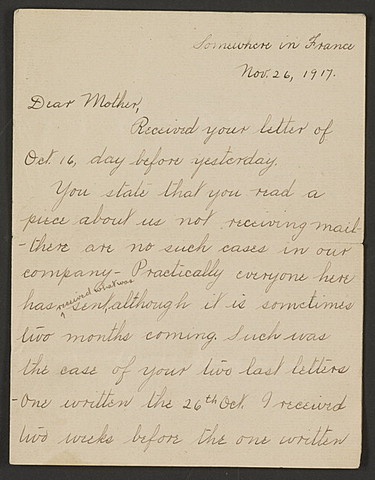 Somewhere in France
Nov. 26, 1917.
Dear Mother,
Received your letter of
Oct. 16, day before yesterday.
You state that you read a
piece about us not receiving mail-
-there are no such cases in our
company- Practically everyone here
received what was
has ^ sent, although it is sometimes
two months coming. Such was
the case of your two last letters
-One written the 26th Oct. I received
two weeks before the one written